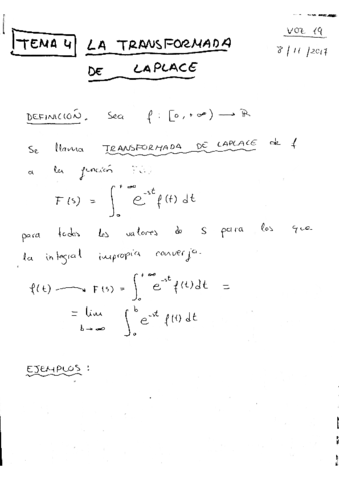 TEMA 4 LA TRANSFORMADA DE LAPLACE
VOZ 19
8/11/2017
DEFINICIÓN. Sea f: [0, +∞) → ℝ
Se llama TRANSFORMADA DE LAPLACE de f
a la función
F(s) = ∫₀^{+∞} e^{-st} f(t) dt
para todos los valores de s para los que
la integral impropia converja.
f(t) → F(s) = ∫₀^{+∞} e^{-st} f(t) dt =
= lim_{b→∞} ∫₀^b e^{-st} f(t) dt
EJEMPLOS: